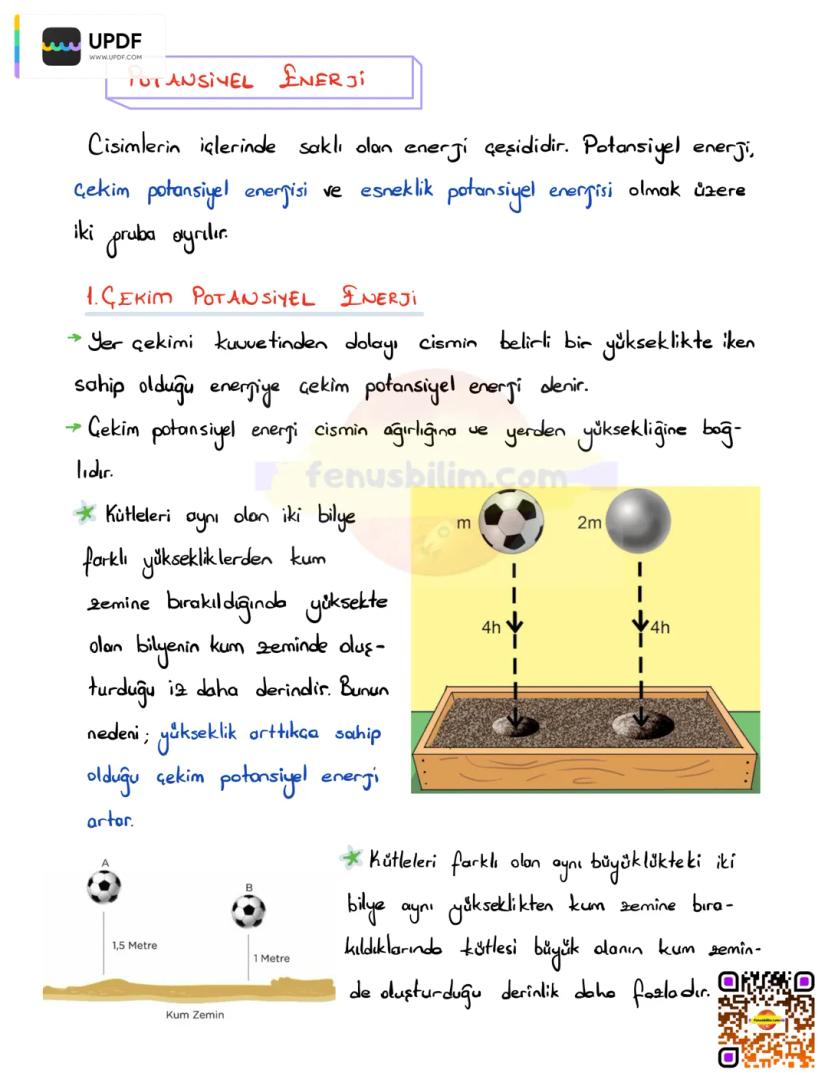 UPDF
WWW.UPDF.COM
POTANSİYEL ENERJİ
Cisimlerin içlerinde saklı olan enerji çeşididir. Potansiyel enerji,
çekim potansiyel enerjisi ve esneklik potansiyel enerjisi olmak üzere
iki gruba ayrılır.
1. ÇEKİM POTANSİYEL ENERJİ
→ Yer çekimi kuvvetinden dolayı cismin belirli bir yükseklikte iken
sahip olduğu enerjiye çekim potansiyel enerji denir.
→ Çekim potansiyel enerji cismin ağırlığına ve yerden yüksekliğine bağ-
lıdır.
fenusbilim.com
Kütleleri aynı olan iki bilye
farklı yüksekliklerden kum
zemine bırakıldığında yüksekte
olan bilyenin kum zeminde oluş-
turduğu iz daha derindir. Bunun
nedeni; yükseklik arttıkça sahip
olduğu çekim potansiyel enerji
artar.
m 2m
4h 4h
A
B
1,5 Metre
1 Metre
Kum Zemin
Kütleleri farklı olan aynı büyüklükteki iki
bilye aynı yükseklikten kum zemine bıra-
kıldıklarında kütlesi büyük olanın kum zemin-
de oluşturduğu derinlik daha fazladır.
fenusbilim.com